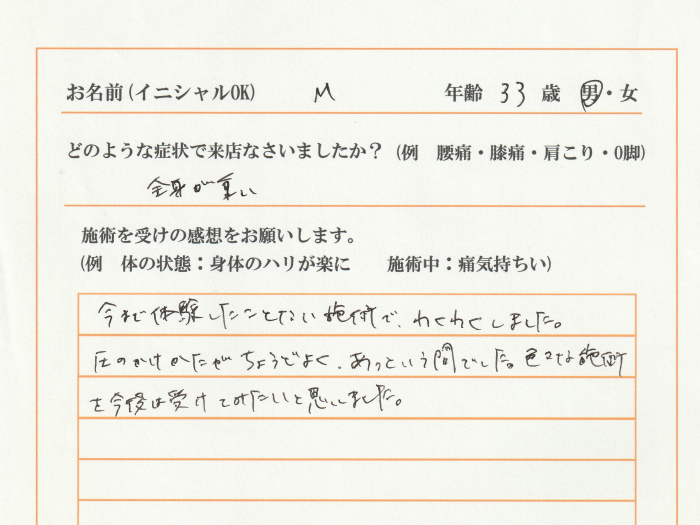 お名前(イニシャルOK) M 年齢 33 歳 男・女
どのような症状で来店なさいましたか？(例 腰痛・膝痛・肩こり・O脚)
全身が重い
施術を受けの感想をお願いします。
(例 体の状態：身体のハリが楽に 施術中：痛気持ちい)
今まで体験したことない施術で、わくわくしました。
圧のかけかたがちょうどよく、あっという間でした。色々な施術
を今後は受けてみたいと思いました。